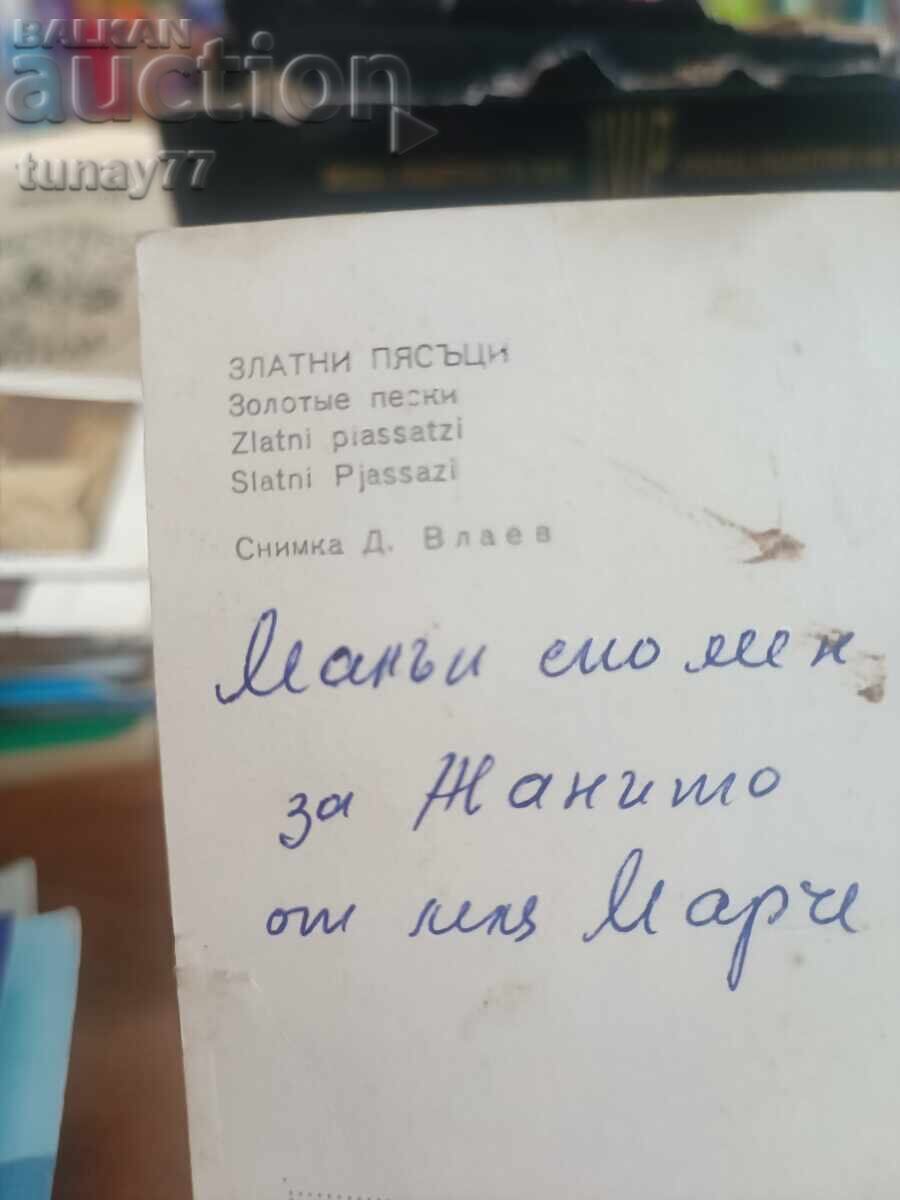 BALKAN
auction
tunay77
ЗЛАТНИ ПЯСЪЦИ
Золотые пески
Zlatni piassatzi
Slatni Pjassazi
Снимка Д. Влаев
спомен
за Жанито
от леля Марче